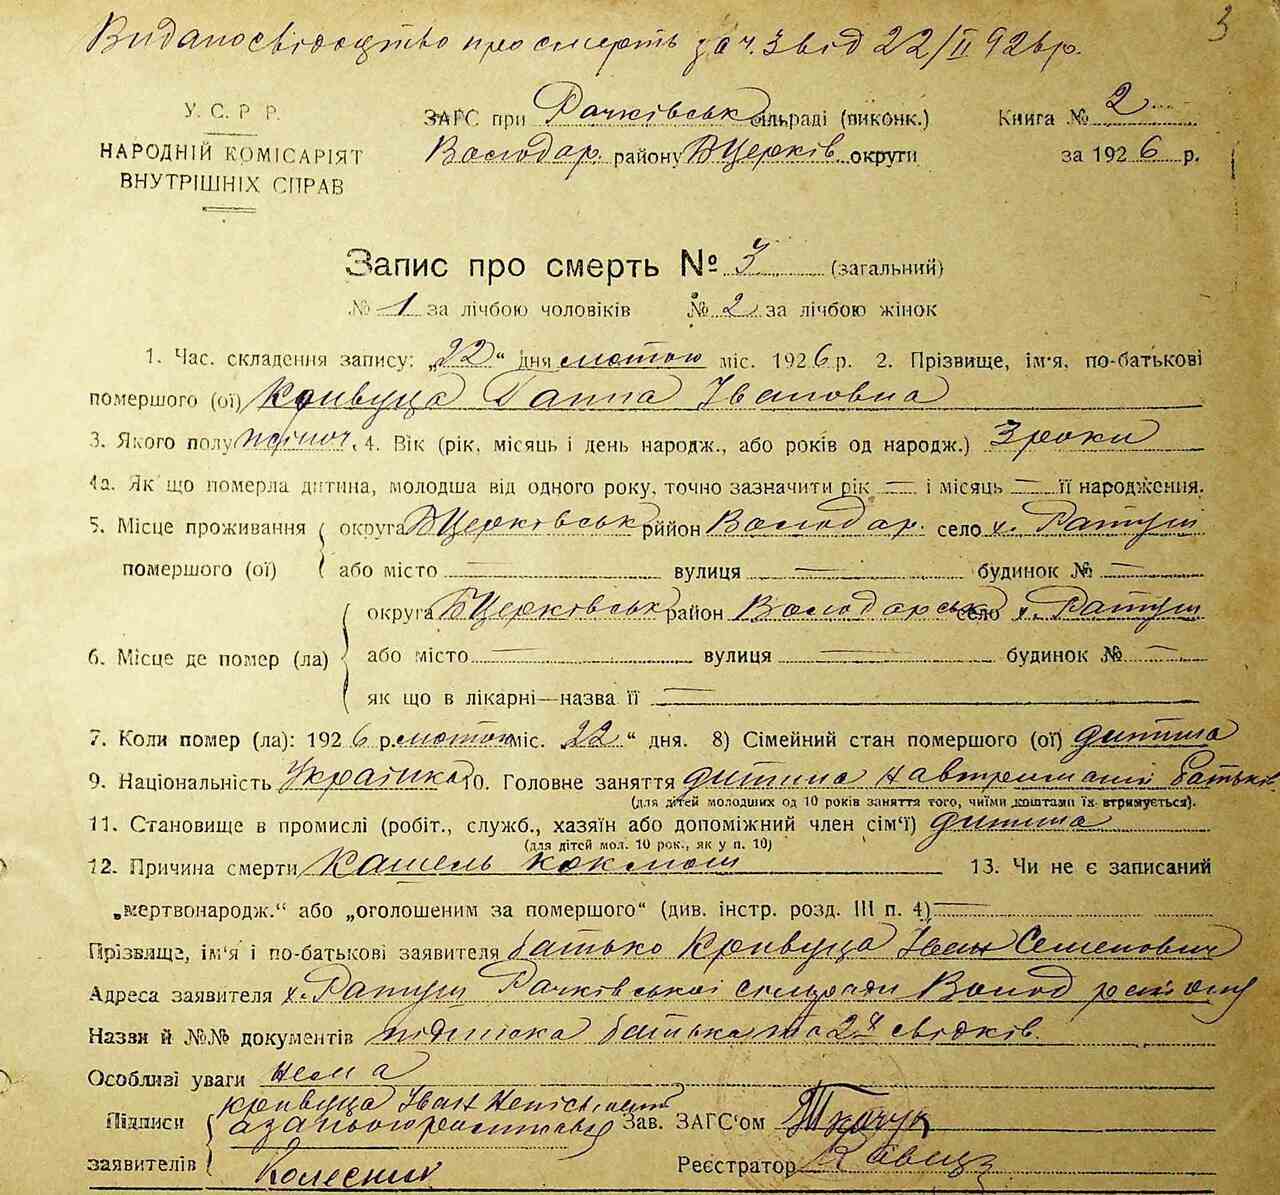 Видано свідоцтво про смерть за ч. 3 від 22/II 926 р.
3
У. С. Р. Р.
НАРОДНІЙ КОМІСАРІЯТ
ВНУТРІШНІХ СПРАВ
ЗАГС при Рачківськ сільраді (виконк.)
Володар. району БЦерків. округи
Книга № 2
за 1926 р.
Запис про смерть № 3 (загальний)
№ 1 за лічбою чоловіків № 2 за лічбою жінок
1. Час. складення запису: „22“ дня лютого міс. 1926 р. 2. Прізвище, ім'я, по-батькові
помершого (ої) Кривуца Ганна Івановна
3. Якого полу жіноч. 4. Вік (рік, місяць і день народж., або років од народж.) 3 роки
4а. Як що померла дитина, молодша від одного року, точно зазначити рік — і місяць — її народження.
5. Місце проживання округа БЦерківськ район Володар. село х. Ратуш
помершого (ої) або місто — вулиця — будинок № —
округа БЦерківськ район Володарськ село х. Ратуш
6. Місце де помер (ла) або місто — вулиця — будинок № —
як що в лікарні—назва її —
7. Коли помер (ла): 1926 р. лютого міс. „22“ дня. 8) Сімейний стан помершого (ої) дитина
9. Національність Українка 10. Головне заняття дитина на втриманні батьків
(для дітей молодших од 10 років заняття того, чиїми коштами їх втримується).
11. Становище в промислі (робіт., служб., хазяїн або допоміжний член сім'ї) дитина
(для дітей мол. 10 рок., як у п. 10)
12. Причина смерти Кашель коклюш 13. Чи не є записаний
„мертвонародж.“ або „оголошеним за помершого“ (див. інстр. розд. III п. 4) —
Прізвище, ім'я і по-батькові заявителя батько Кривуца Іван Семенович
Адреса заявителя х. Ратуш Рачківської сельради Волод району
Назви й №№ документів підписка батька та 2х свідків.
Особливі уваги нема
Підписи Кривуца Іван
а за нього
заявителів Колесник
Зав. ЗАГС'ом Ткачук
Реєстратор